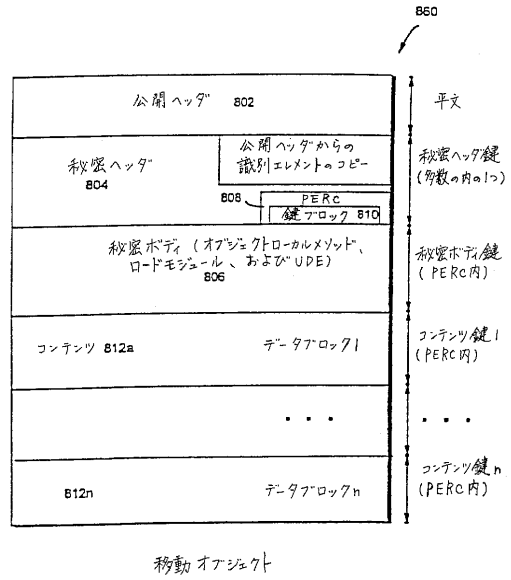 860
公開ヘッダ 802
平文
秘密ヘッダ
804
公開ヘッダからの
識別エレメントのコピー
808
PERC
鍵ブロック 810
秘密ヘッダ鍵
(多数の内の1つ)
秘密ボディ(オブジェクトローカルメソッド、
ロードモジュール、およびUDE)
806
秘密ボディ鍵
(PERC内)
コンテンツ 812a
データブロック1
コンテンツ鍵1
(PERC内)
・・・
・・・
812n
データブロックn
コンテンツ鍵n
(PERC内)
移動オブジェクト